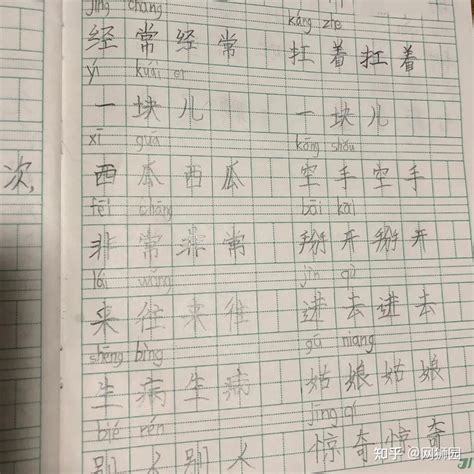 jīng cháng káng zhe
经常经常 扛着扛着
yí kuài er
一块儿 一块儿
xī guā kōng shǒu
西瓜西瓜 空手空手
fēi cháng bāi kāi
非常非常 掰开掰开
lái wǎng jìn qù
来往来往 进去进去
shēng bìng gū niang
生病生病 姑娘姑娘
bié rén jīng qí
别人别人 惊奇惊奇
次,
知乎 @网狮园